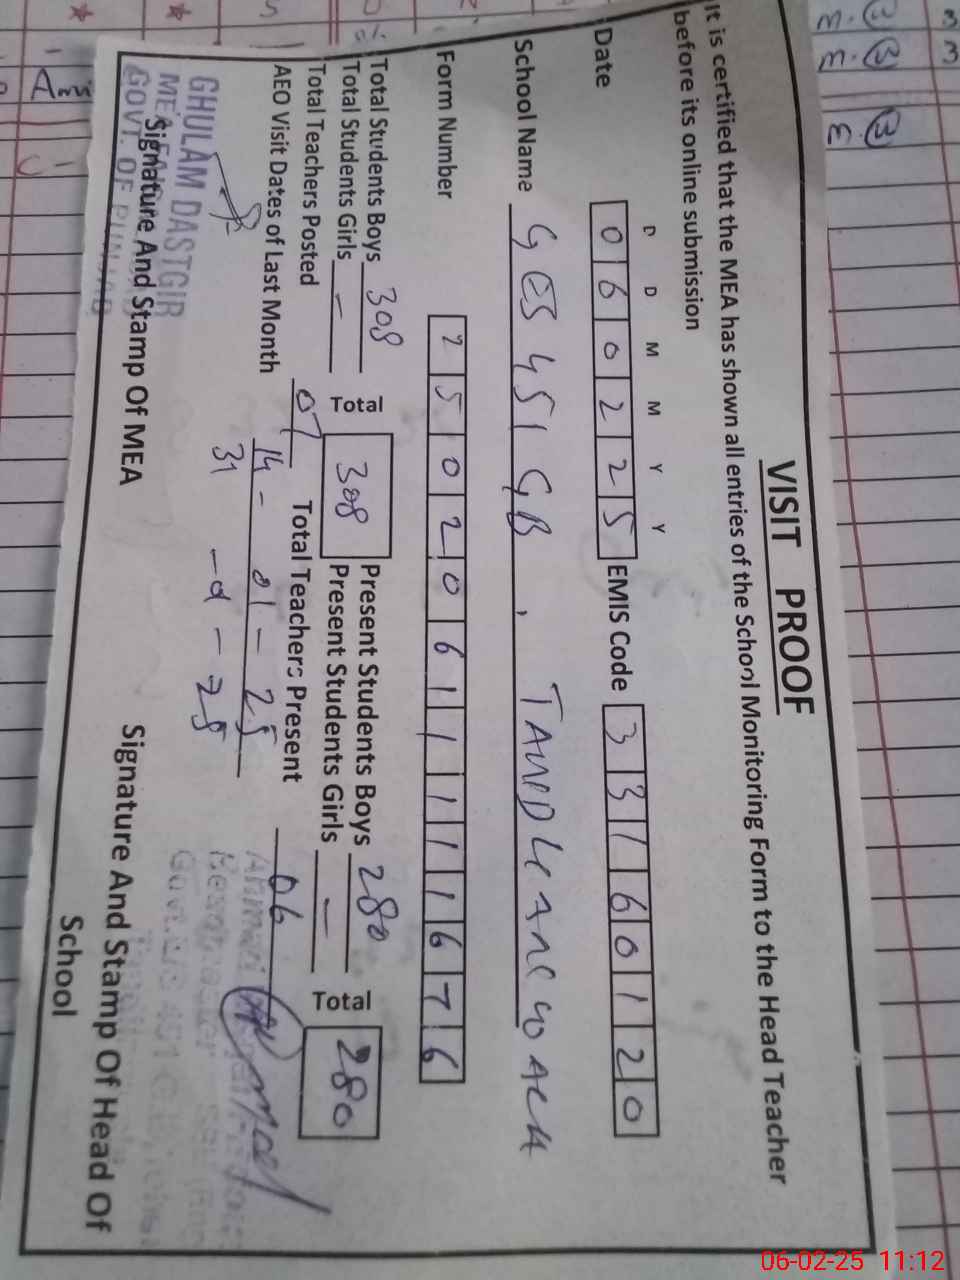 VISIT PROOF
It is certified that the MEA has shown all entries of the School Monitoring Form to the Head Teacher
before its online submission
D D M M Y Y
Date 060225 EMIS Code 33160120
School Name GES 451 GB,
Form Number 2502061111676
Total Students Boys 308 Total 308 Present Students Boys 280 Total 280
Total Students Girls - Present Students Girls -
Total Teachers Posted 07 Total Teachers Present 06
AEO Visit Dates of Last Month 14 - 01 - 25
31 - 01 - 25
GHULAM DASTGIR
MEA
GOVT. OF PUNJAB
Signature And Stamp Of MEA
Signature And Stamp Of Head Of
School
06-02-25 11:12